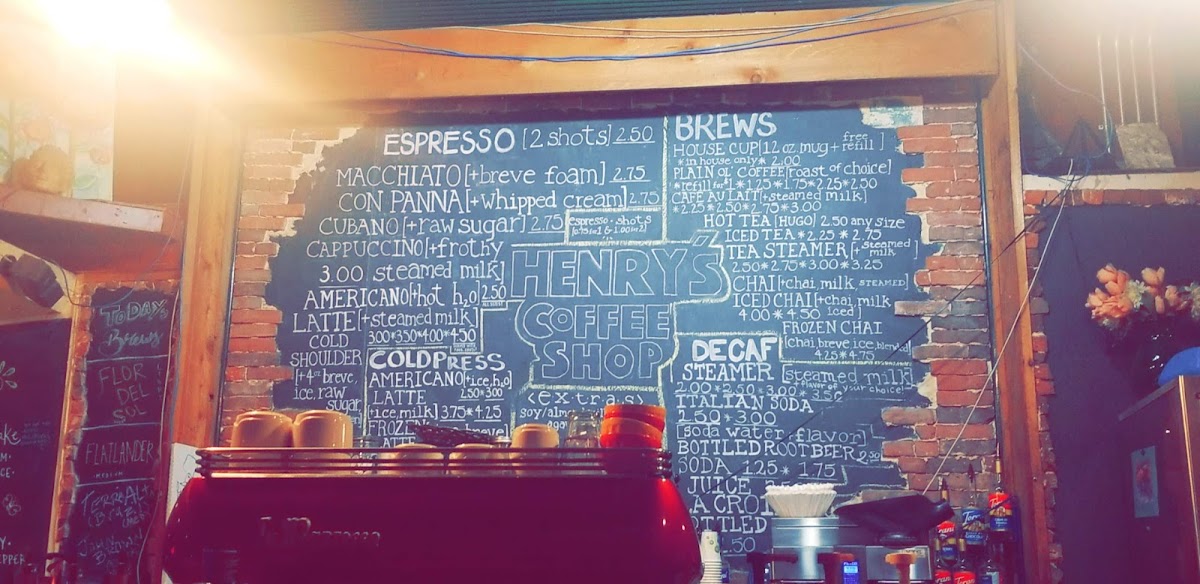 ESPRESSO [2 shots] 2.50
MACCHIATO [+breve foam] 2.75
CON PANNA [+whipped cream] 2.75
CUBANO [+raw sugar] 2.75
CAPPUCCINO [+frothy
3.00 steamed milk]
AMERICANO [+hot h2o] 2.50
LATTE [+steamed milk]
3.00*3.50*4.00*4.50
COLD
SHOULDER
[+4oz breve,
ice, raw
sugar
COLDPRESS
AMERICANO [+ice, h2o]
2.50*3.00
LATTE
[+ice, milk] 3.75*4.25
FROZEN
LATTE
espresso + shots
HENRY'S
COFFEE
SHOP
<extras>
soy/
BREWS
HOUSE CUP [12 oz mug + free refill]
*in house only* 2.00
PLAIN OL' COFFEE [roast of choice]
*refill for $1 * 1.25 * 1.75 * 2.25 * 2.50
CAFE AU LAIT [+steamed milk]
*2.25 * 2.50 * 2.75 * 3.00
HOT TEA [HUGO] 2.50 any size
ICED TEA * 2.25 * 2.75
TEA STEAMER [+steamed milk
2.50 * 2.75 * 3.00 * 3.25
CHAI [+chai milk, STEAMED]
ICED CHAI [+chai milk iced]
4.00 * 4.50
FROZEN CHAI
[chai, breve, ice, blended]
4.25 * 4.75
DECAF
STEAMER [steamed milk]
+flavor of your choice!
2.00*2.50*3.00*3.50
ITALIAN SODA
2.50*3.00
[soda water, flavor]
BOTTLED ROOT BEER 2.50
SODA 1.25 * 1.75
JUICE
LA CROIX
BOTTLED
TODAY'S
Brews
FLOR
DEL
SOL
FLATLANDER
La Marzocco